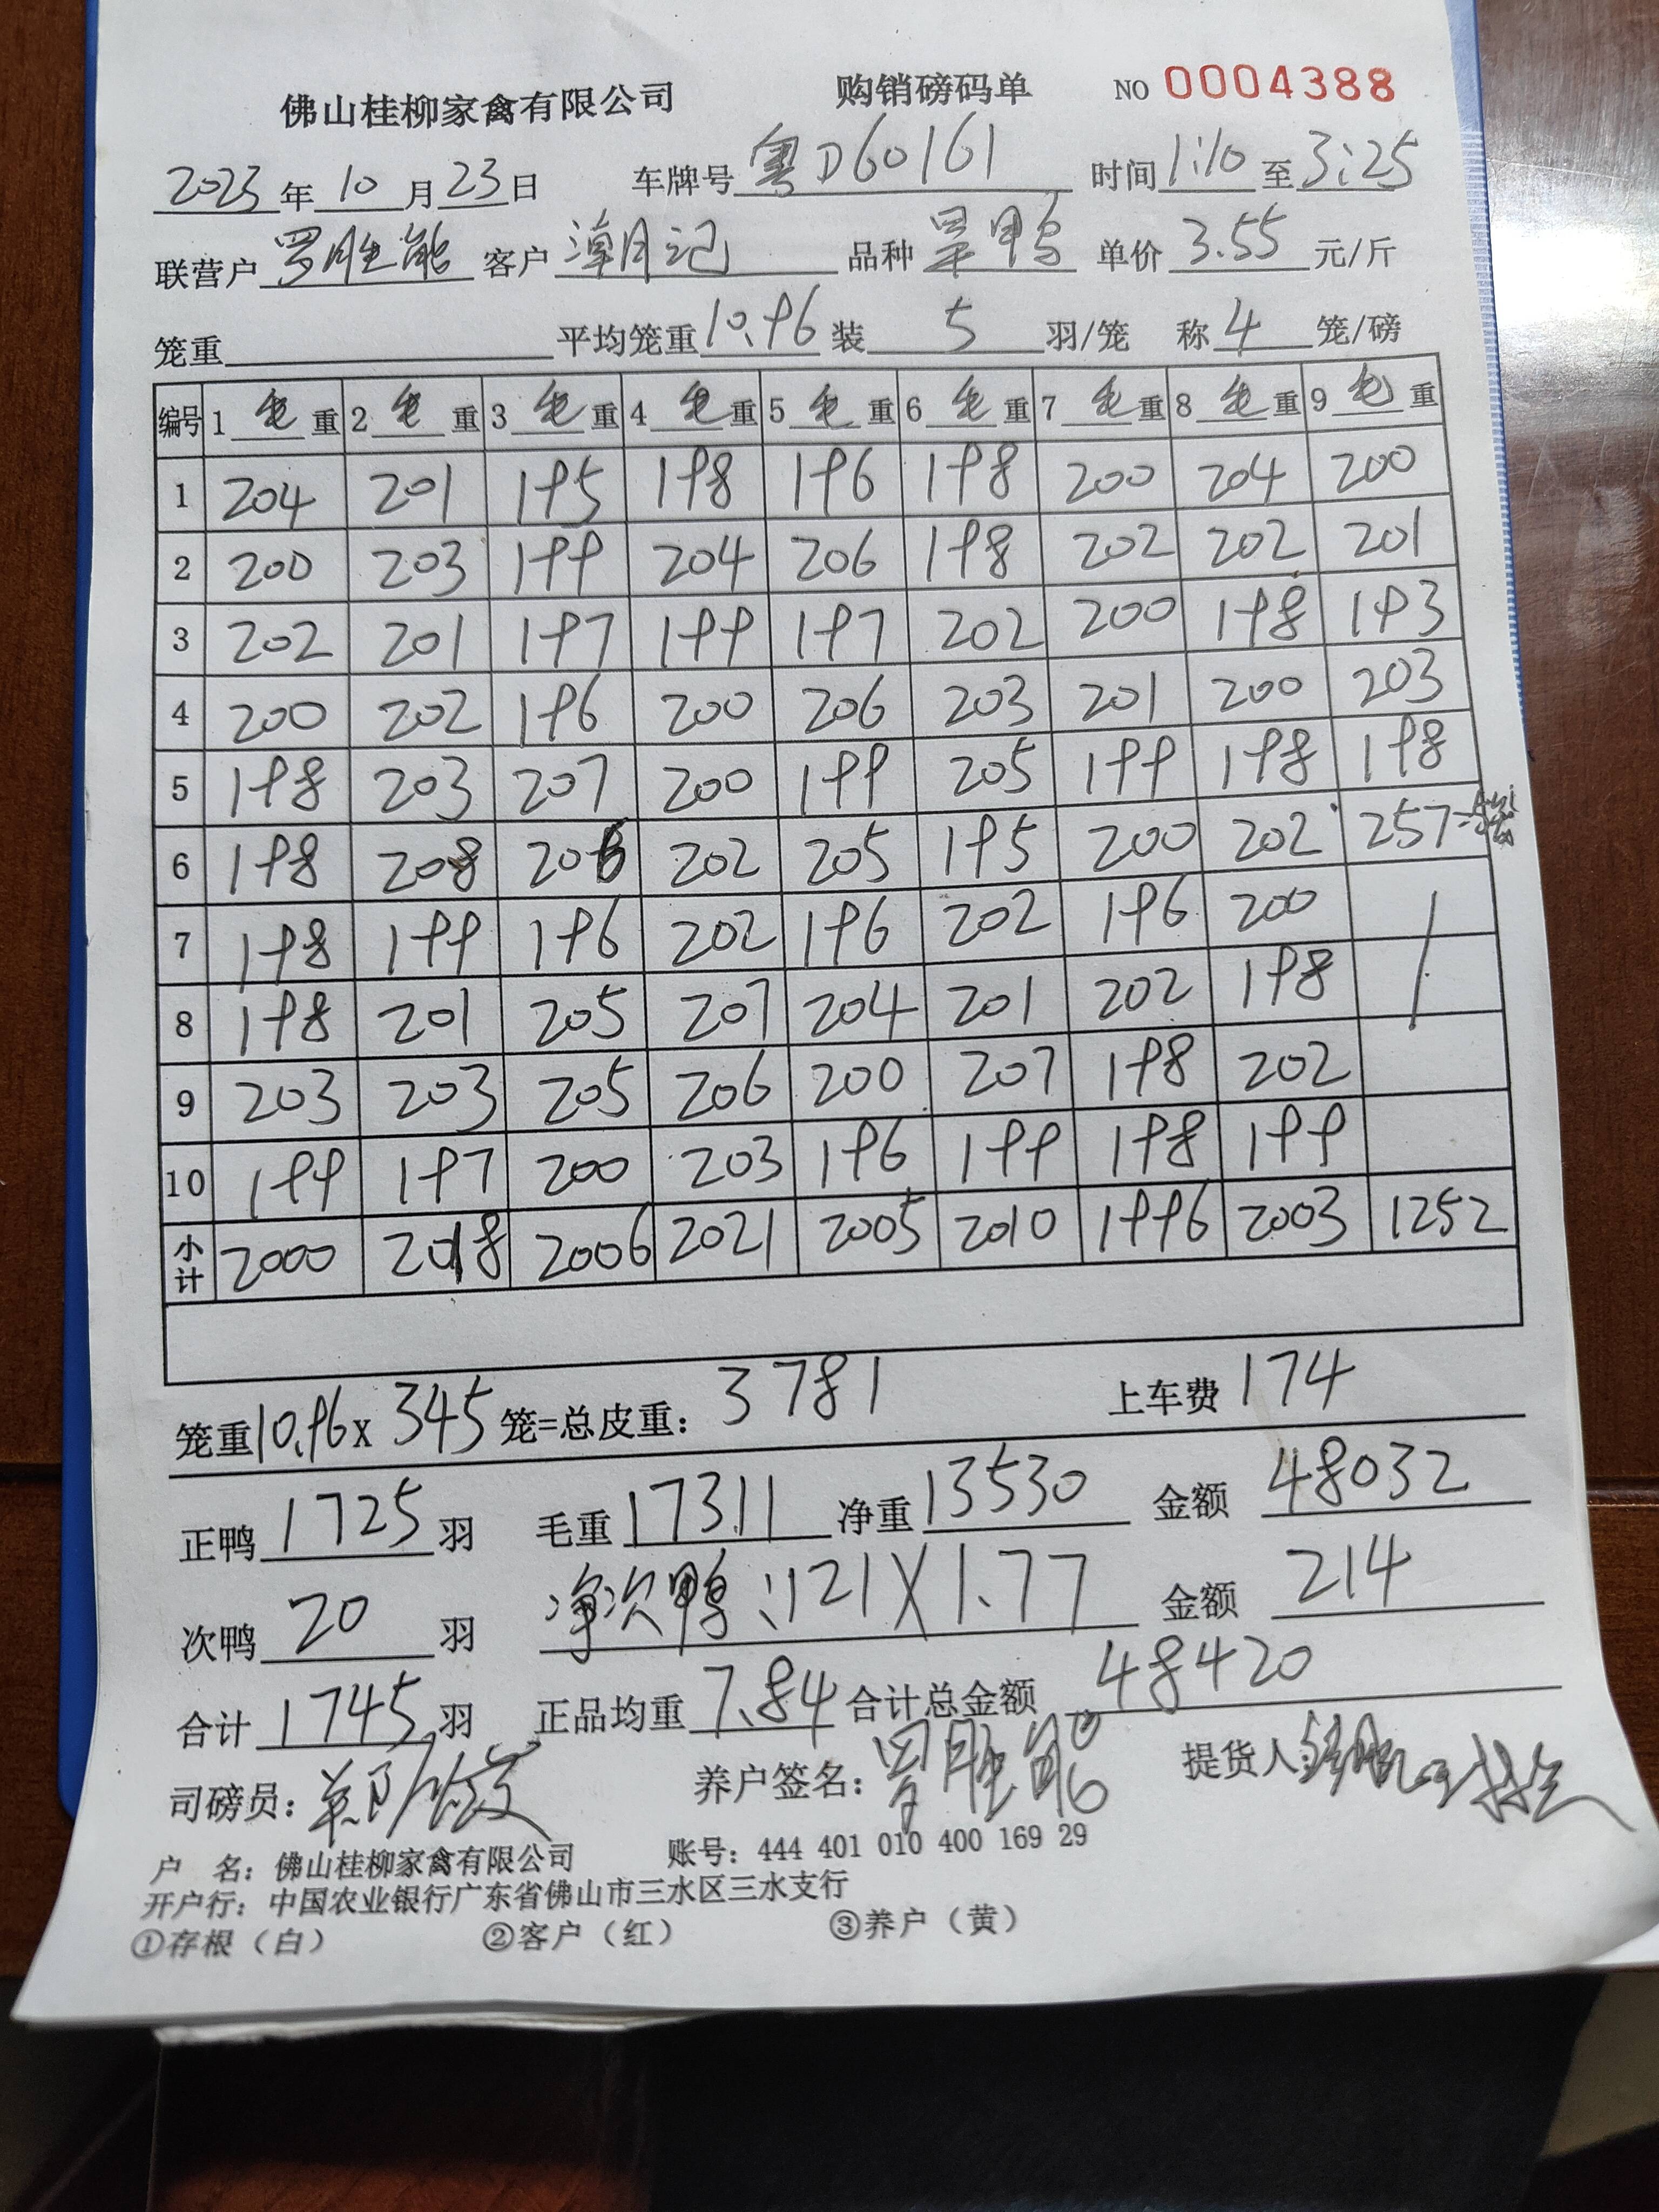 佛山桂柳家禽有限公司 购销磅码单 NO 0004388
2023年10月23日 车牌号粤D60161 时间1:10至3:25
联营户罗胜能 客户潮月记 品种旱鸭 单价3.55元/斤
笼重 平均笼重10.96装5羽/笼 称4笼/磅
编号 1毛重 2毛重 3毛重 4毛重 5毛重 6毛重 7毛重 8毛重 9毛重
1 204 201 195 198 196 198 200 204 200
2 200 203 199 204 206 198 202 202 201
3 202 201 197 199 197 202 200 198 193
4 200 202 196 200 206 203 201 200 203
5 198 203 207 200 199 205 199 198 198
6 198 208 206 202 205 195 200 202 257=5笼
7 198 199 196 202 196 202 196 200
8 198 201 205 207 204 201 202 198
9 203 203 205 206 200 207 198 202
10 199 197 200 203 196 199 198 199
小计 2000 2018 2006 2021 2005 2010 1996 2003 1252
笼重10.96x345笼=总皮重：3781 上车费174
正鸭1725羽 毛重17311 净重13530 金额48032
次鸭20羽 净次鸭:121X1.77 金额214
合计1745羽 正品均重7.84 合计总金额48420
司磅员： 养户签名：罗胜能 提货人
户 名：佛山桂柳家禽有限公司 账号：444 401 010 400 169 29
开户行：中国农业银行广东省佛山市三水区三水支行
①存根（白） ②客户（红） ③养户（黄）